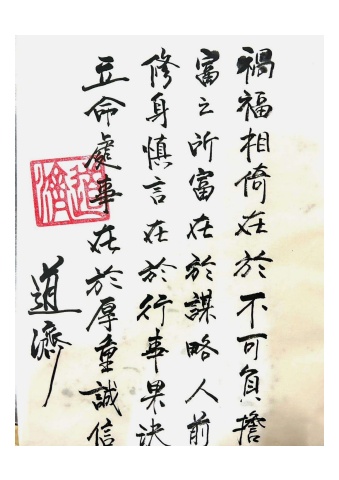 禍福相倚在於不可負擔
富之所富在於謀略人前
修身慎言在於行事果決
立命處事在於厚重誠信
道濟
道濟